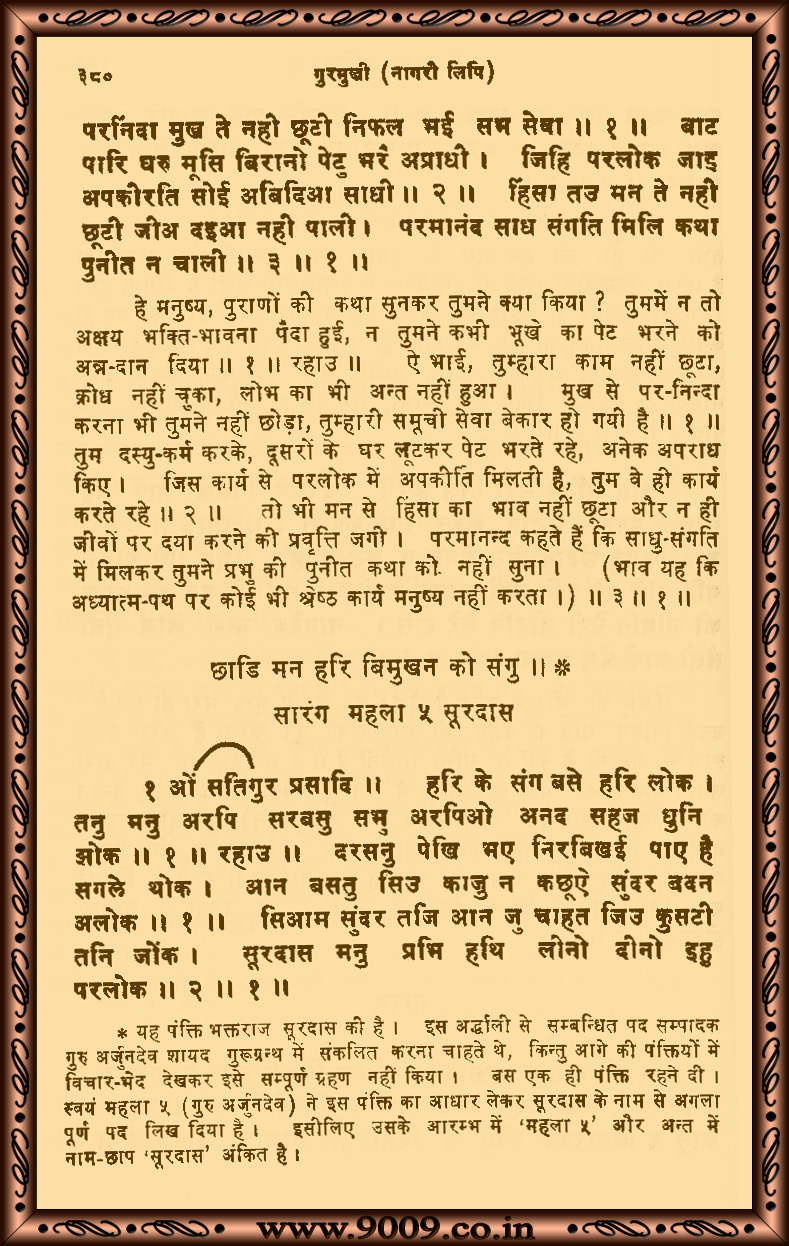 ३८० गुरमुखी (नागरी लिपि)
परनिंदा मुख ते नही छूटी निफल भई सभ सेवा ॥ १ ॥ बाट
पारि घरु मूसि बिरानो पेटु भरै अप्राधी । जिहि परलोक जाइ
अपकीरति सोई अबिदिआ साधी ॥ २ ॥ हिंसा तउ मन ते नही
छूटी जीअ दइआ नही पाली । परमानंद साध संगति मिलि कथा
पुनीत न चाली ॥ ३ ॥ १ ॥
हे मनुष्य, पुराणों की कथा सुनकर तुमने क्या किया ? तुममें न तो
अक्षय भक्ति-भावना पैदा हुई, न तुमने कभी भूखे का पेट भरने को
अन्न-दान दिया ॥ १ ॥ रहाउ ॥ ऐ भाई, तुम्हारा काम नहीं छूटा,
क्रोध नहीं चुका, लोभ का भी अन्त नहीं हुआ । मुख से पर-निन्दा
करना भी तुमने नहीं छोड़ा, तुम्हारी समूची सेवा बेकार हो गयी है ॥ १ ॥
तुम दस्यु-कर्म करके, दूसरों के घर लूटकर पेट भरते रहे, अनेक अपराध
किए । जिस कार्य से परलोक में अपकीर्ति मिलती है, तुम वे ही कार्य
करते रहे ॥ २ ॥ तो भी मन से हिंसा का भाव नहीं छूटा और न ही
जीवों पर दया करने की प्रवृत्ति जगी । परमानन्द कहते हैं कि साधु-संगति
में मिलकर तुमने प्रभु की पुनीत कथा को नहीं सुना । (भाव यह कि
अध्यात्म-पथ पर कोई भी श्रेष्ठ कार्य मनुष्य नहीं करता ।) ॥ ३ ॥ १ ॥
छाडि मन हरि बिमुखन को संगु ॥ *
सारंग महला ५ सूरदास
१ ओं सतिगुर प्रसादि ॥ हरि के संग बसे हरि लोक ।
तनु मनु अरपि सरबसु सभु अरपिओ अनद सहज धुनि
झोक ॥ १ ॥ रहाउ ॥ दरसनु पेखि भए निरबिखई पाए है
सगले थोक । आन बसतु सिउ काजु न कछूऐ सुंदर बदन
अलोक ॥ १ ॥ सिआम सुंदर तजि आन जु चाहत जिउ कुसटी
तनि जोंक । सूरदास मनु प्रभि हथि लीनो दीनो इहु
परलोक ॥ २ ॥ १ ॥
* यह पंक्ति भक्तराज सूरदास की है । इस अर्द्धाली से सम्बन्धित पद सम्पादक
गुरु अर्जुनदेव शायद गुरूग्रन्थ में संकलित करना चाहते थे, किन्तु आगे की पंक्तियों में
विचार-भेद देखकर इसे सम्पूर्ण ग्रहण नहीं किया । बस एक ही पंक्ति रहने दी ।
स्वयं महला ५ (गुरु अर्जुनदेव) ने इस पंक्ति का आधार लेकर सूरदास के नाम से अगला
पूर्ण पद लिख दिया है । इसीलिए उसके आरम्भ में ‘महला ५’ और अन्त में
नाम-छाप ‘सूरदास’ अंकित है ।
www.9009.co.in